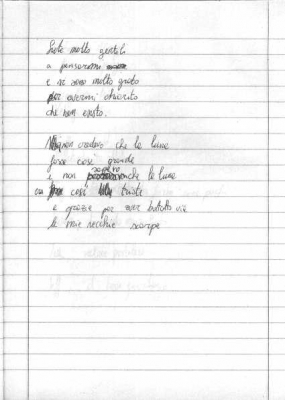 Siete molto gentili
a pensarmi
e vi sono molto grato
per avermi chiarito
che non esisto.
non credevo che la luna
fosse così grande
e non sapevo che la luna
così triste
e grazie per aver buttato via
le mie vecchie scarpe